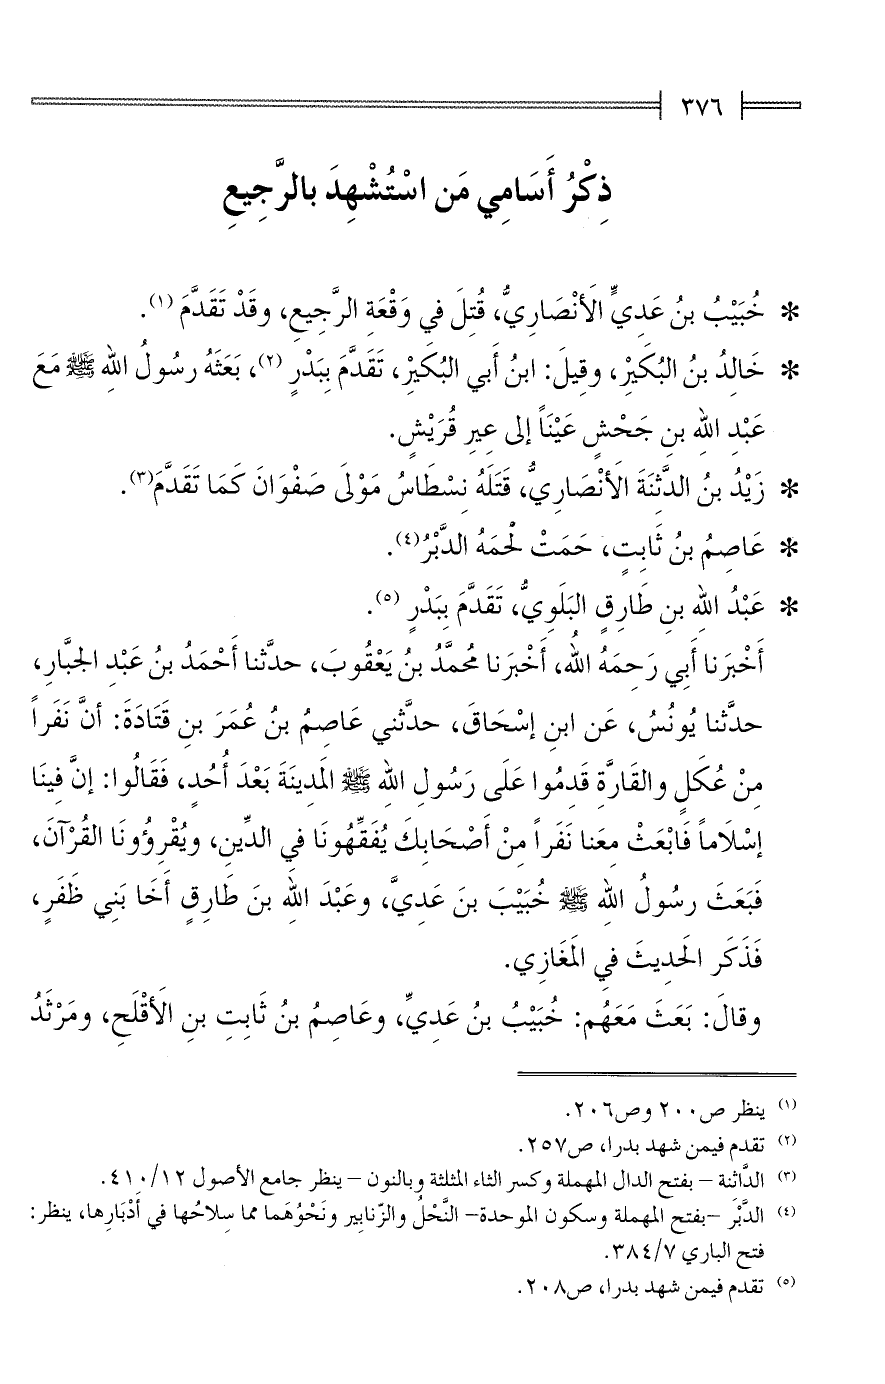 ٣٧٦
ذِكْرُ أَسَامِي مَن اسْتُشْهِدَ بالرَّجِيعِ
* خُبَيْبُ بنُ عَدِيٍّ الأَنْصَارِيُّ، قُتِلَ في وَقْعَةِ الرَّجِيعِ، وقَدْ تَقَدَّمَ (١).
* خَالِدُ بنُ البُكَيْرِ، وقِيلَ: ابنُ أَبي البُكَيْرِ، تَقَدَّمَ بِبَدْرٍ (٢)، بَعَثَهُ رسُولُ اللهِ ﷺ مَعَ
عَبْدِ اللهِ بنِ جَحْشٍ عَيْنَاً إلى عِيرِ قُرَيْشٍ.
* زَيْدُ بنُ الدَّثِنَةَ الأَنْصَارِيُّ، قَتَلَهُ نِسْطَاسُ مَوْلَى صَفْوَانَ كَمَا تَقَدَّمَ(٣).
* عَاصِمُ بنُ ثَابِتٍ، حَمَتْ لَحْمَهُ الدَّبْرُ(٤).
* عَبْدُ اللهِ بنِ طَارِقٍ البَلَوِيُّ، تَقَدَّمَ بِبَدْرٍ (٥).
أَخْبَرَنا أَبِي رَحِمَهُ اللهُ، أَخْبَرَنا مُحمَّدُ بنُ يَعْقُوبَ، حدَّثنا أَحْمَدُ بنُ عَبْدِ الجبَّارِ،
حدَّثنا يُونُسُ، عَن ابنِ إسْحَاقَ، حدَّثني عَاصِمُ بنُ عُمَرَ بنِ قَتَادَةَ: أنَّ نَفَراً
مِنْ عُكَلٍ والقَارَّةِ قَدِمُوا عَلَى رَسُولِ اللهِ ﷺ المَدِينَةَ بَعْدَ أُحُدٍ، فَقَالُوا: إنَّ فِينَا
إسْلَاماً فَابْعَثْ معَنا نَفَراً مِنْ أَصْحَابِكَ يُفَقِّهُونَا في الدِّينِ، ويُقْرِؤُونَا القُرْآنَ،
فَبَعَثَ رسُولُ اللهِ ﷺ خُبَيْبَ بنَ عَدِيَّ، وعَبْدَ اللهِ بنَ طَارِقٍ أَخَا بَنِي ظَفَرٍ،
فَذَكَر الحَدِيثَ فِي المَغَازِي.
وقالَ: بَعَثَ مَعَهُم: خُبَيْبُ بنُ عَدِيٍّ، وعَاصِمُ بنُ ثَابِتِ بنِ الأَقْلَحِ، ومَرْثَدُ
(١) ينظر ص٢٠٠ وص٢٠٦.
(٢) تقدم فيمن شهد بدرا، ص٢٥٧.
(٣) الدَّاثنة – بفتح الدال المهملة وكسر الثاء المثلثة وبالنون – ينظر جامع الأصول ٤١٠/١٢.
(٤) الدَّبْرَ –بفتح المهملة وسكون الموحدة– النَّحْلُ والزّنابير ونَحْوُهَما مما سِلاحُها في أَدْبَارِها، ينظر:
فتح الباري ٣٨٤/٧.
(٥) تقدم فيمن شهد بدرا، ص٢٠٨.